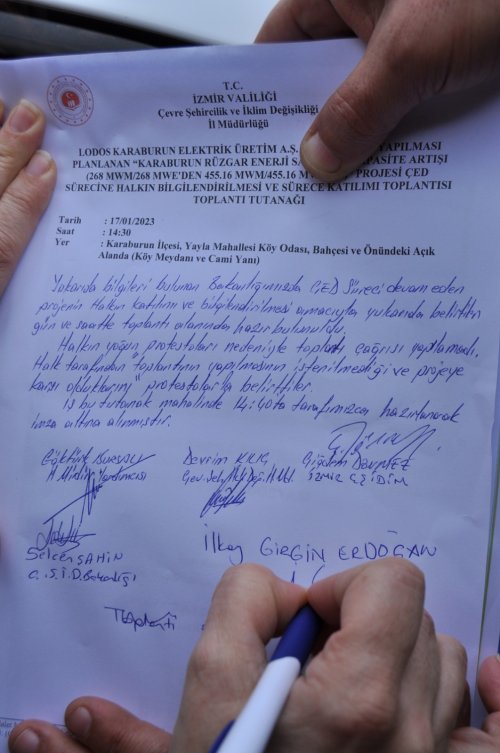 T.C.
İZMİR VALİLİĞİ
Çevre Şehircilik ve İklim Değişikliği
İl Müdürlüğü
LODOS KARABURUN ELEKTRİK ÜRETİM A.Ş. YAPILMASI
PLANLANAN “KARABURUN RÜZGAR ENERJİ SA KAPASİTE ARTIŞI
(268 MWM/268 MWE'DEN 455.16 MWM/455.16 M PROJESİ ÇED
SÜRECİNE HALKIN BİLGİLENDİRİLMESİ VE SÜRECE KATILIMI TOPLANTISI
TOPLANTI TUTANAĞI
Tarih : 17/01/2023
Saat : 14:30
Yer : Karaburun İlçesi, Yayla Mahallesi Köy Odası, Bahçesi ve Önündeki Açık
Alanda (Köy Meydanı ve Cami Yanı)
Yukarıda bilgileri bulunan Bakanlığımızda ÇED Süreci devam eden
projenin Halkın katılımı ve bilgilendirilmesi amacıyla yukarıda belirtilen
gün ve saatte toplantı alanında hazır bulunuldu.
Halkın yoğun protestoları nedeniyle toplantı çağrısı yapılamadı.
Halk tarafından "toplantının yapılmasının istenilmediği ve projeye
karşı olduklarını" protestolarla belirttiler.
İş bu tutanak mahalinde 14:40 ta tarafımızca hazırlanarak
imza altına alınmıştır.
Göktürk Devrim KILIÇ Çiğdem DÖNMEZ
İl Müdür Yardımcısı İZMİR ÇŞİDİM
Selcen ŞAHİN
Ç.Ş.İ.D. Bakanlığı
İlkay GİRGİN ERDOĞAN
Toplantı